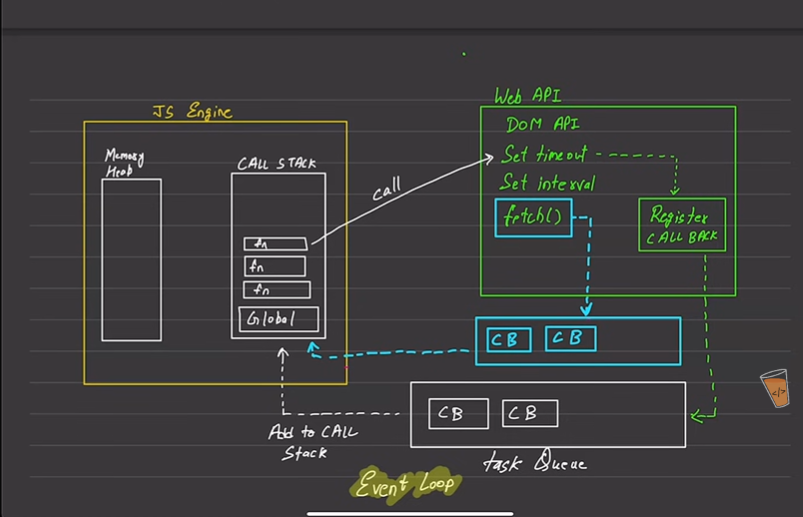 JS Engine
Memory
Heap
CALL STACK
fn
fn
fn
Global
call
Web API
DOM API
Set timeout
Set interval
fetch()
Register
CALL BACK
CB
CB
CB
CB
Add to CALL
Stack
task Queue
Event Loop
</>